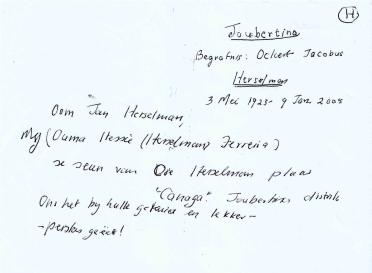 H
Joubertina
Begrafnis: Ockert Jacobus
Herselman
3 Mei 1925 - 9 Jan 2005
Oom Jan Herselman,
My (Ouma Hessie (Herselman) Ferreira)
se seun van Herselman plaas
"Canaga". Joubertina distrik
Ons het by hulle gekuier en lekker -
- geëet!